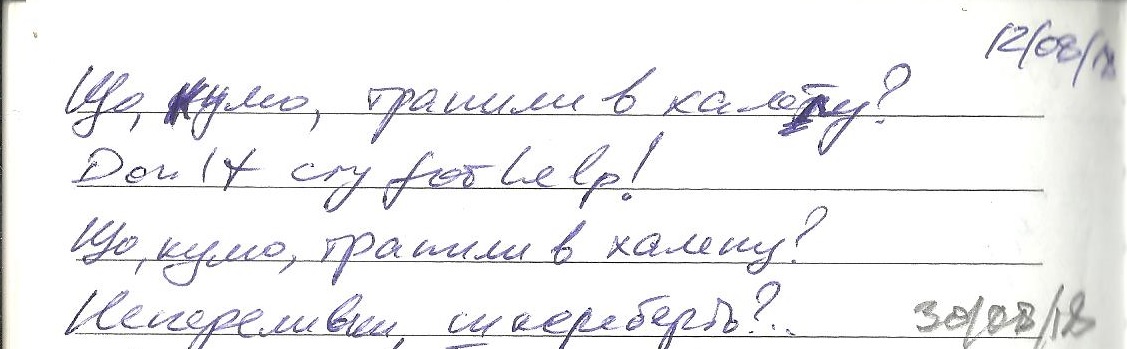 12/08/18
Що, кумо, трапили в халепу?
Don't cry for help!
Що, кумо, трапили в халепу?
Непереливки, шкереберть?..
30/08/18